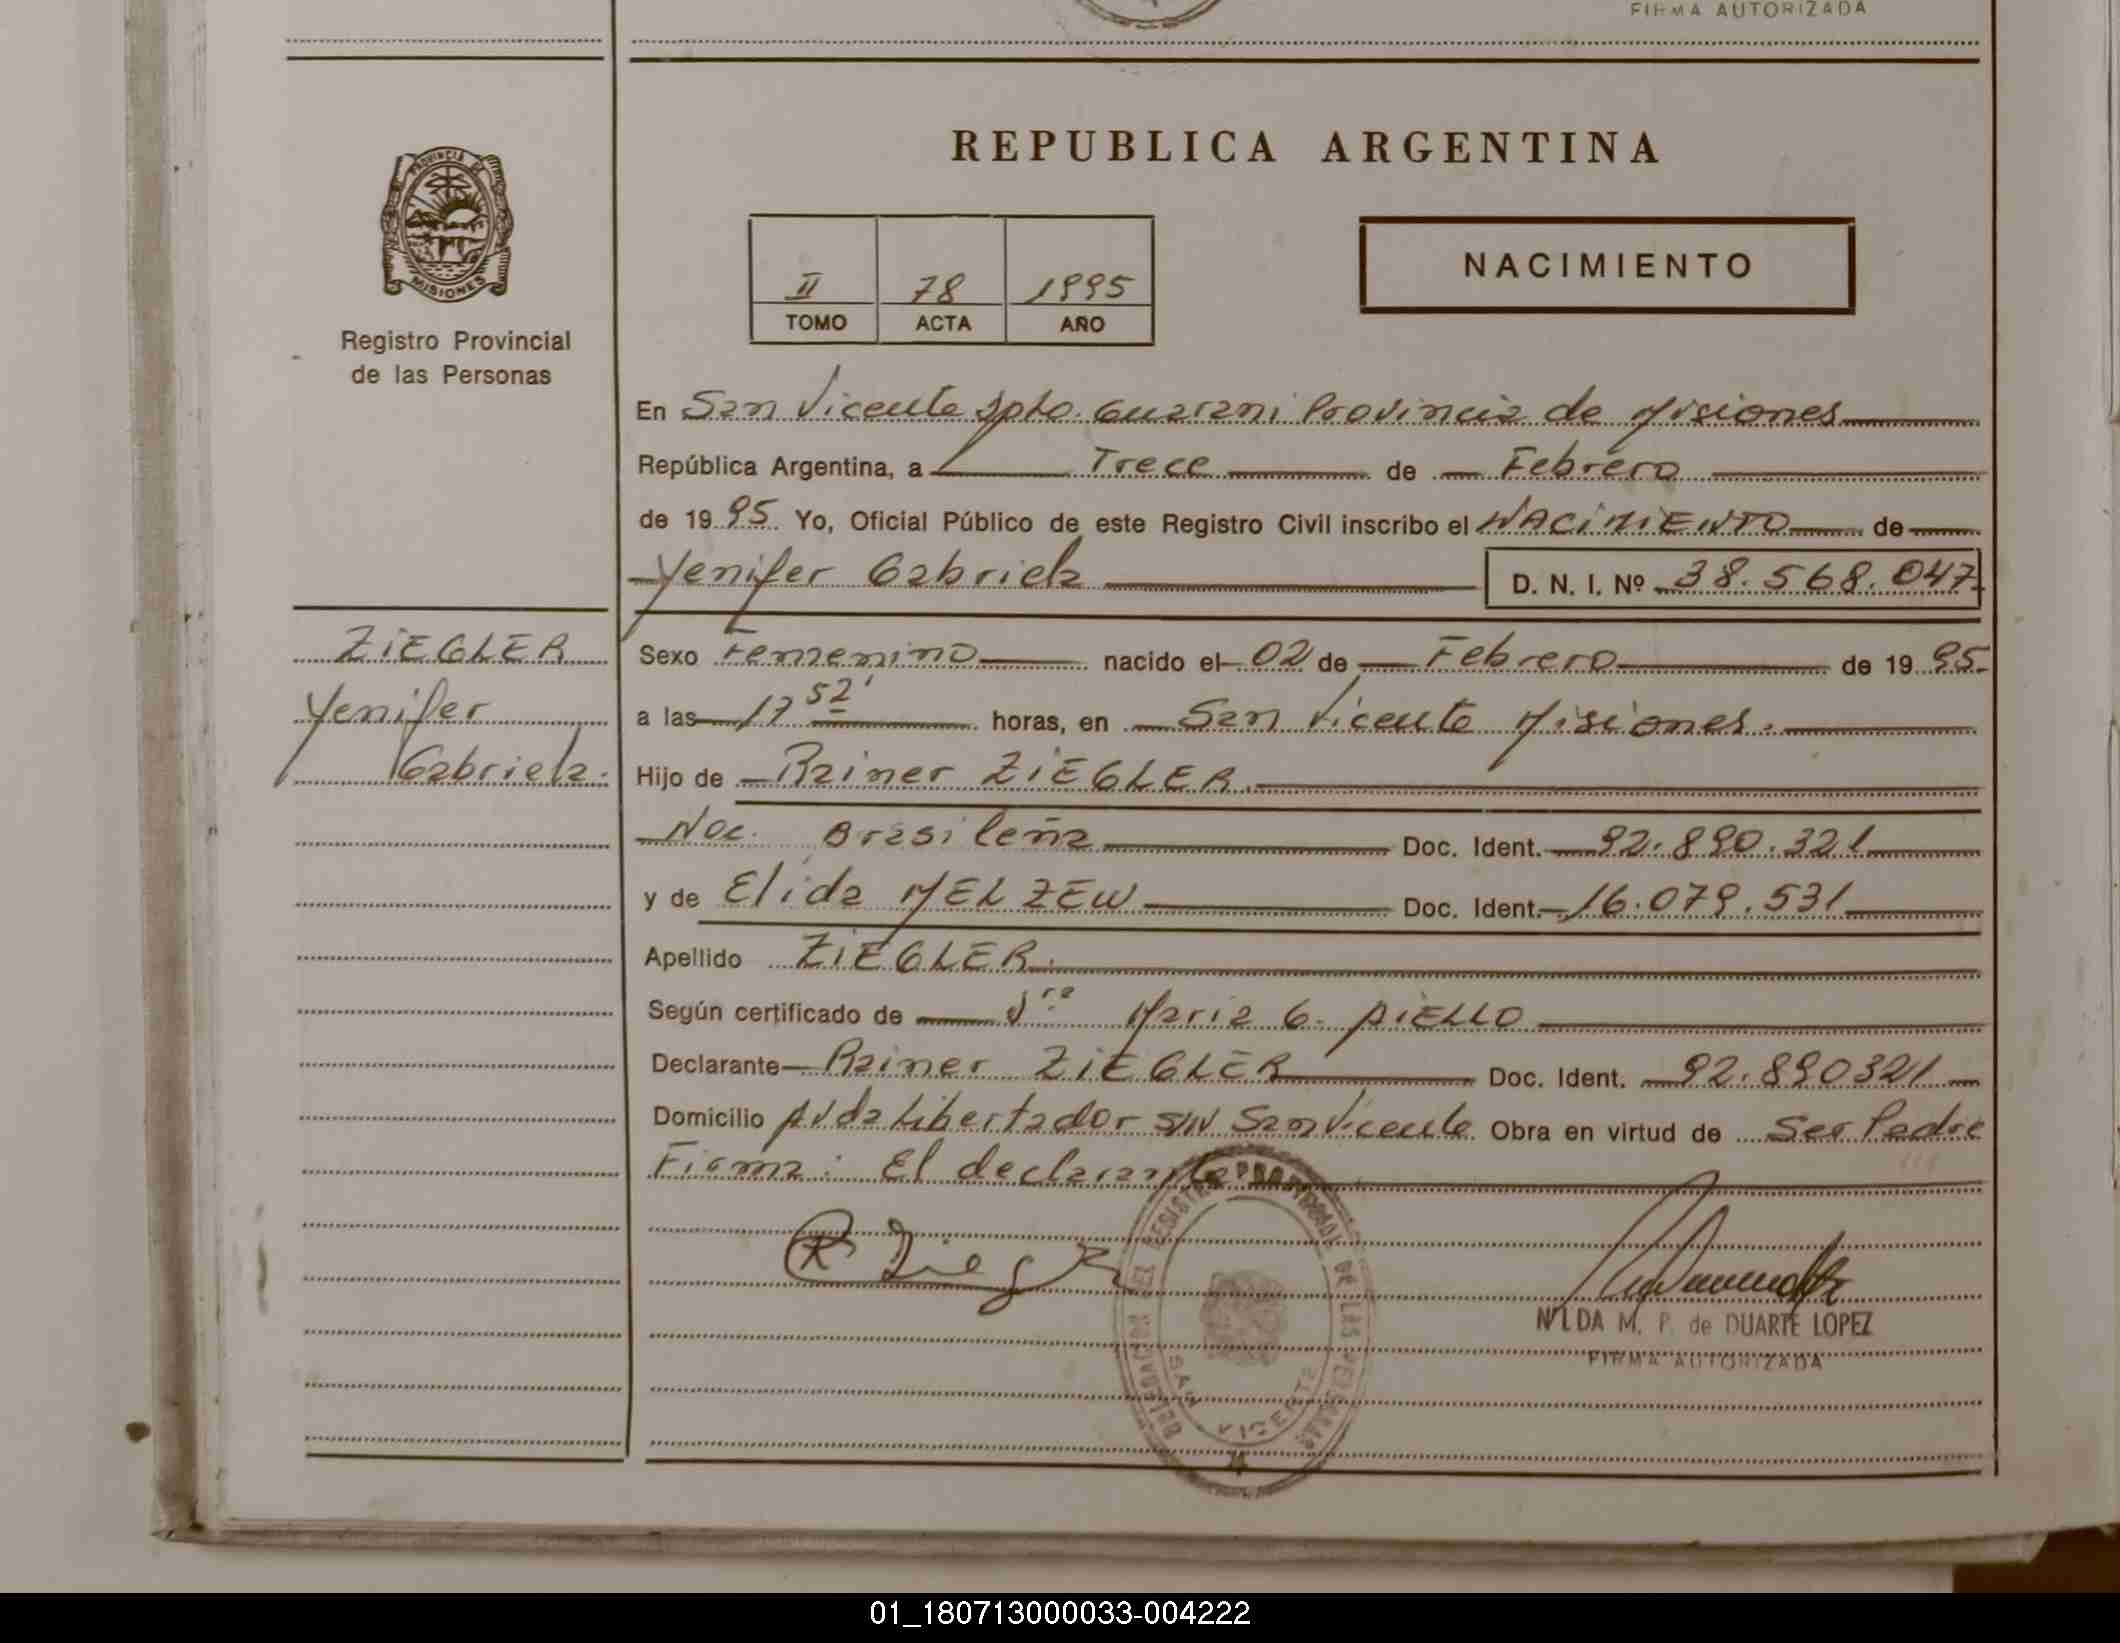 FIRMA AUTORIZADA
REPUBLICA ARGENTINA
PROVINCIA DE
MISIONES
Registro Provincial
de las Personas
II 78 1995
TOMO ACTA AÑO
NACIMIENTO
En San Vicente Dpto. Guarani Provincia de Misiones
República Argentina, a Trece de Febrero
de 1995 Yo, Oficial Público de este Registro Civil inscribo el NACIMIENTO de
Yenifer Gabriela D. N. I. Nº 38.568.047
ZIEGLER
Yenifer
Gabriela.
Sexo Femenino nacido el 02 de Febrero de 1995
a las 17 52' horas, en San Vicente Misiones.
Hijo de Rainer ZIEGLER.
Nac. Brasileña Doc. Ident. 92.890.321
y de Elida MELZEW Doc. Ident. 16.079.531
Apellido ZIEGLER.
Según certificado de Dra Maria G. AIELLO
Declarante Rainer ZIEGLER Doc. Ident. 92.890321
Domicilio Avda Libertador S/N San Vicente Obra en virtud de Ser Padre
Firma: El declarante
R Ziegler
DELEGACION DEL REGISTRO PROVINCIAL DE LAS PERSONAS
SAN VICENTE
NILDA M. P. de DUARTE LOPEZ
FIRMA AUTORIZADA
01_180713000033-004222